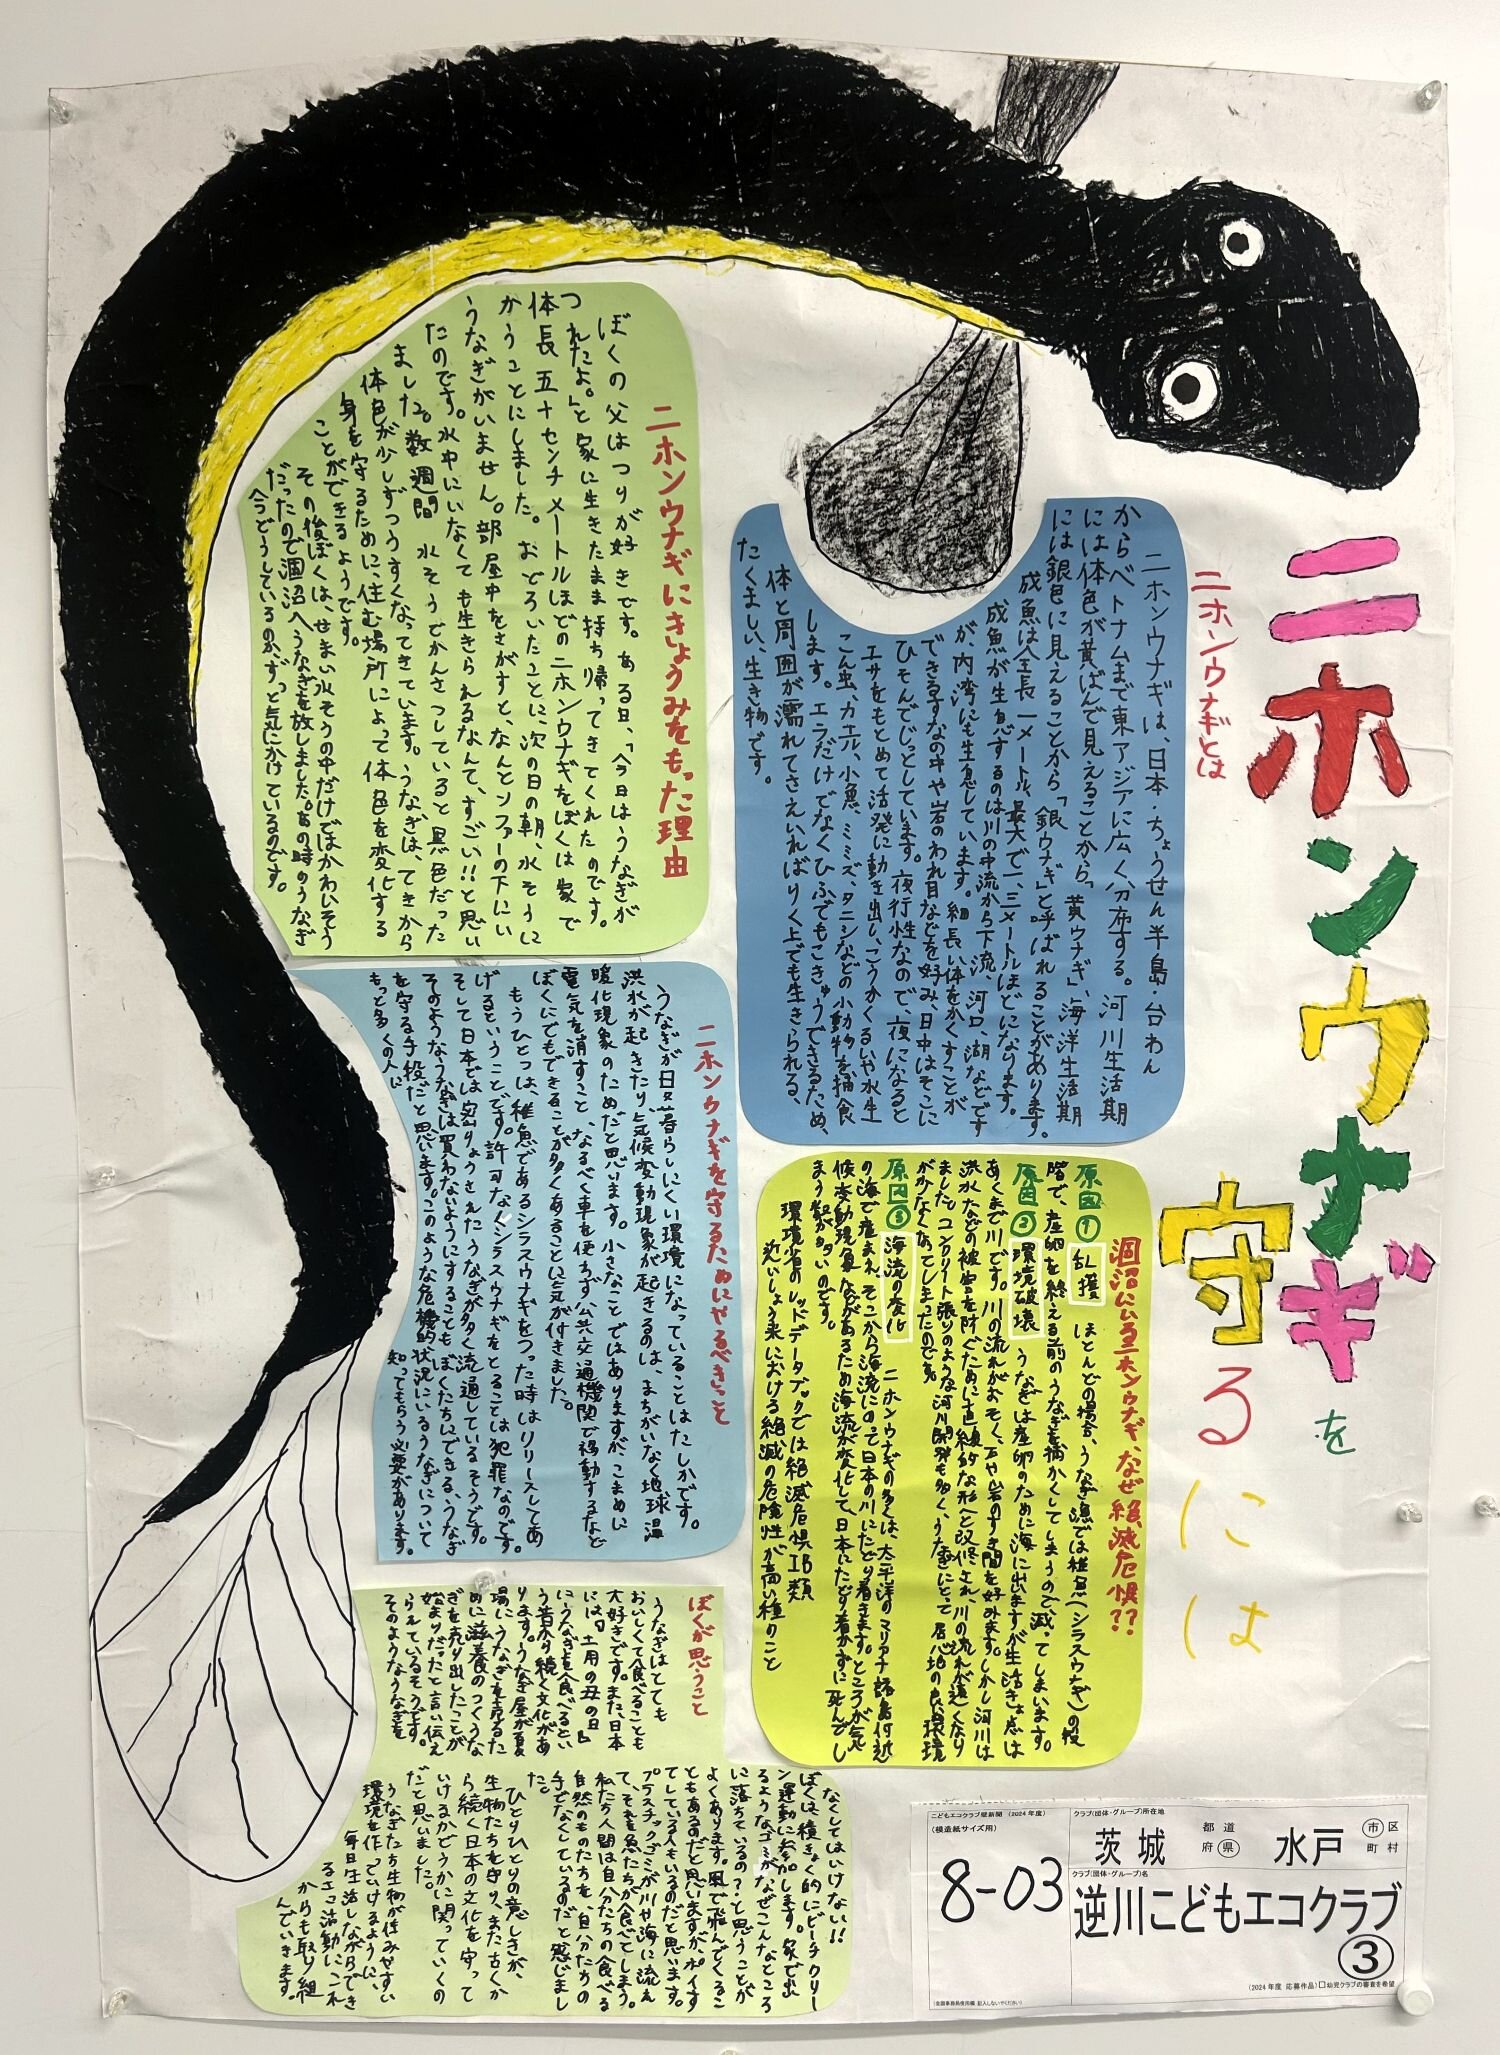 ニホンウナギを
守るには
ニホンウナギとは
ニホンウナギは、日本・ちょうせん半島・台わん
からベトナムまで東アジアに広く分布する。河川生活期
には体色が黄ばんで見えることから「黄ウナギ」、海洋生活期
には銀色に見えることから「銀ウナギ」と呼ばれることがあります。
成魚は全長一メートル、最大で一、三メートルほどになります。
成魚が生息するのは川の中流から下流、河口、湖などです
が、内湾にも生息しています。細長い体をかくすことが
できるすなの中や岩のわれ目などを好み、日中はそこに
ひそんでじっとしています。夜行性なので、夜になると
エサをもとめて活発に動き出し、こうかくるいや水生
こん虫、カエル、小魚、ミミズ、タニシなどの小動物を捕食
します。エラだけでなくひふでもこきゅうできるため、
体と周囲が濡れてさえいればりく上でも生きられる、
たくましい、生き物です。
ニホンウナギにきょうみをもった理由
ぼくの父はつりが好きです。ある日、「今日はうなぎが
つれたよ。」と家に生きたまま持ち帰ってきてくれたのです。
体長五十センチメートルほどのニホンウナギをぼくは家で
かうことにしました。おどろいたことに、次の日の朝、水そうに
うなぎがいません。部屋中をさがすと、なんとソファーの下にい
たのです。水中にいなくても生きられるなんて、すごい!!と思い
ました。数週間水そうでかんさつしていると黒色だった
体色が少しずつうすくなってきています。うなぎは、てきから
身を守るために、住む場所によって体色を変化する
ことができるようです。
その後ぼくは、せまい水そうの中だけではかわいそう
だったので涸沼へうなぎを放しました。あの時のうなぎ
今どうしているのか、ずっと気にかけているのです。
涸沼にいるニホンウナギ、なぜ絶滅危惧??
原因① 乱獲 ほとんどの場合、うなぎ漁では稚魚(シラスウナギ)の段
階で、産卵を終える前のうなぎを捕かくしてしまうので、減ってしまいます。
原因② 環境破壊 うなぎは産卵のために海に出ますが生活きょ点は
あくまで川です。川の流れがおそく、石や岩のすき間を好みます。しかし河川は
洪水などの被害を防ぐために直線的な形へと改修され、川の流れが速くなり
ました。コンクリート張りのような河川開発も多く、うなぎにとって居心地の良い環境
が少なくなってしまったのです。
原因③ 海流の変化 ニホンウナギの多くは、太平洋のマリアナ諸島付近
の海で産まれ、そこから海流にのって日本の川にたどり着きます。ところが気
候変動現象ながあるため海流が変化して、日本にたどり着かずに死んでし
まう数が多いのです。
環境省のレッドデータブックでは絶滅危惧IB類
近いしょう来における絶滅の危険性が高い種のこと
ニホンウナギを守るためにやるべきこと
うなぎが日々暮らしにくい環境になっていることはたしかです。
洪水が起きたり、気候変動現象が起きるのは、まちがいなく地球温
暖化現象のためだと思います。小さなことではありますが、こまめに
電気を消すこと、なるべく車を使わず公共交通機関で移動するなど
ぼくにでもできることが多くあることに気が付きました。
もうひとつは、稚魚であるシラスウナギをつった時はリリースしてあ
げるということです。許可なくシラスウナギをとることは犯罪なのです。
そして日本では密りょうされたうなぎが多く流通しているそうです。
そのようなうなぎは買わないようにすることもぼくたちにできる、うなぎ
を守る手段だと思います。このような危機的状況にいるうなぎについて
もっと多くの人に知ってもらう必要があります。
ぼくが思うこと
うなぎはとても
おいしくて食べることも
大好きです。また、日本
には「土用の丑の日」
にうなぎを食べるとい
う昔から続く文化があ
ります。うなぎ屋が夏
場にうなぎを売るた
めに滋養のつくうな
ぎを売り出したことが
始まりだったと言い伝え
られているそうです。
そのようなうなぎを
なくしてはいけない!!
ぼくは、積きょく的にビーチクリー
ン運動に参加します。家で出
るようなゴミがなぜこんなところ
に落ちているの?と思うことが
よくあります。風で飛んでくるこ
ともあるのだと思いますが、ポイす
てしている人もいるのだと思います。
プラスチックゴミが川や海に流れ
て、それを魚たちが食べてしまう。
私たち人間は自分たちの食べる
自然のものたちを、自分たちの
手でなくしているのだと感じまし
た。
ひとりひとりの意しきが、
生物たちを守り、また古くか
ら続く日本の文化を守って
いけるかどうかに関っていくの
だと思いました。
うなぎたち生物が住みやすい
環境を作っていけるように、
毎日生活しながらでき
るエコ活動にこれ
からも取り組
んでいきます。
こどもエコクラブ壁新聞(2024年度)
(模造紙サイズ用)
8-03
(全国事務局使用欄 記入しないでください)
クラブ(団体・グループ)所在地
茨城 都道府県 水戸 市区町村
クラブ(団体・グループ)名
逆川こどもエコクラブ
③
(2024年度 応募作品)□幼児クラブの審査を希望